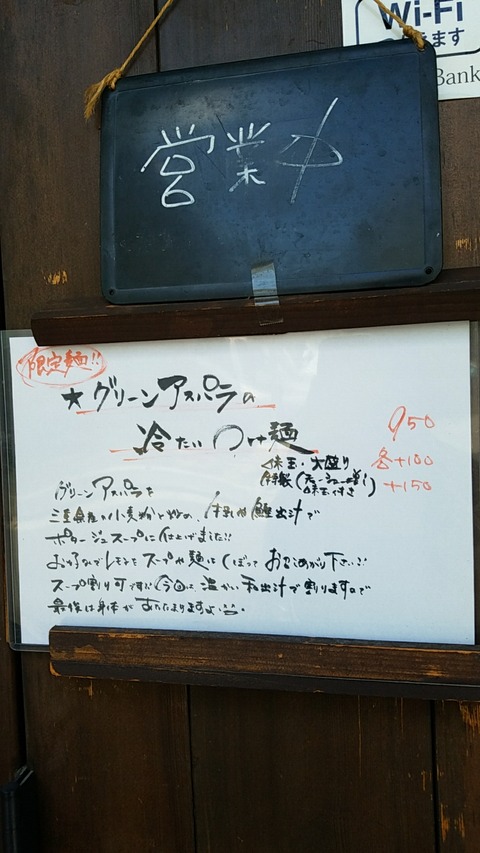 Wi-Fi
きます
Bank
営業中
限定麺!!
★グリーンアスパラの
冷たいつけ麺
950
味玉・大盛り 各+100
特製(チャーシュー増し 味玉付き) +150
グリーンアスパラを
三重県産の小麦粉と炒め、
鰹出汁で
ポタージュスープに仕上げました!!
お好みでレモンをスープや麺にしぼってお召し上がり下さい!!
スープ割り可です!!今回は温かい和出汁で割りますので
最後は身体があたたまりますよ^^。